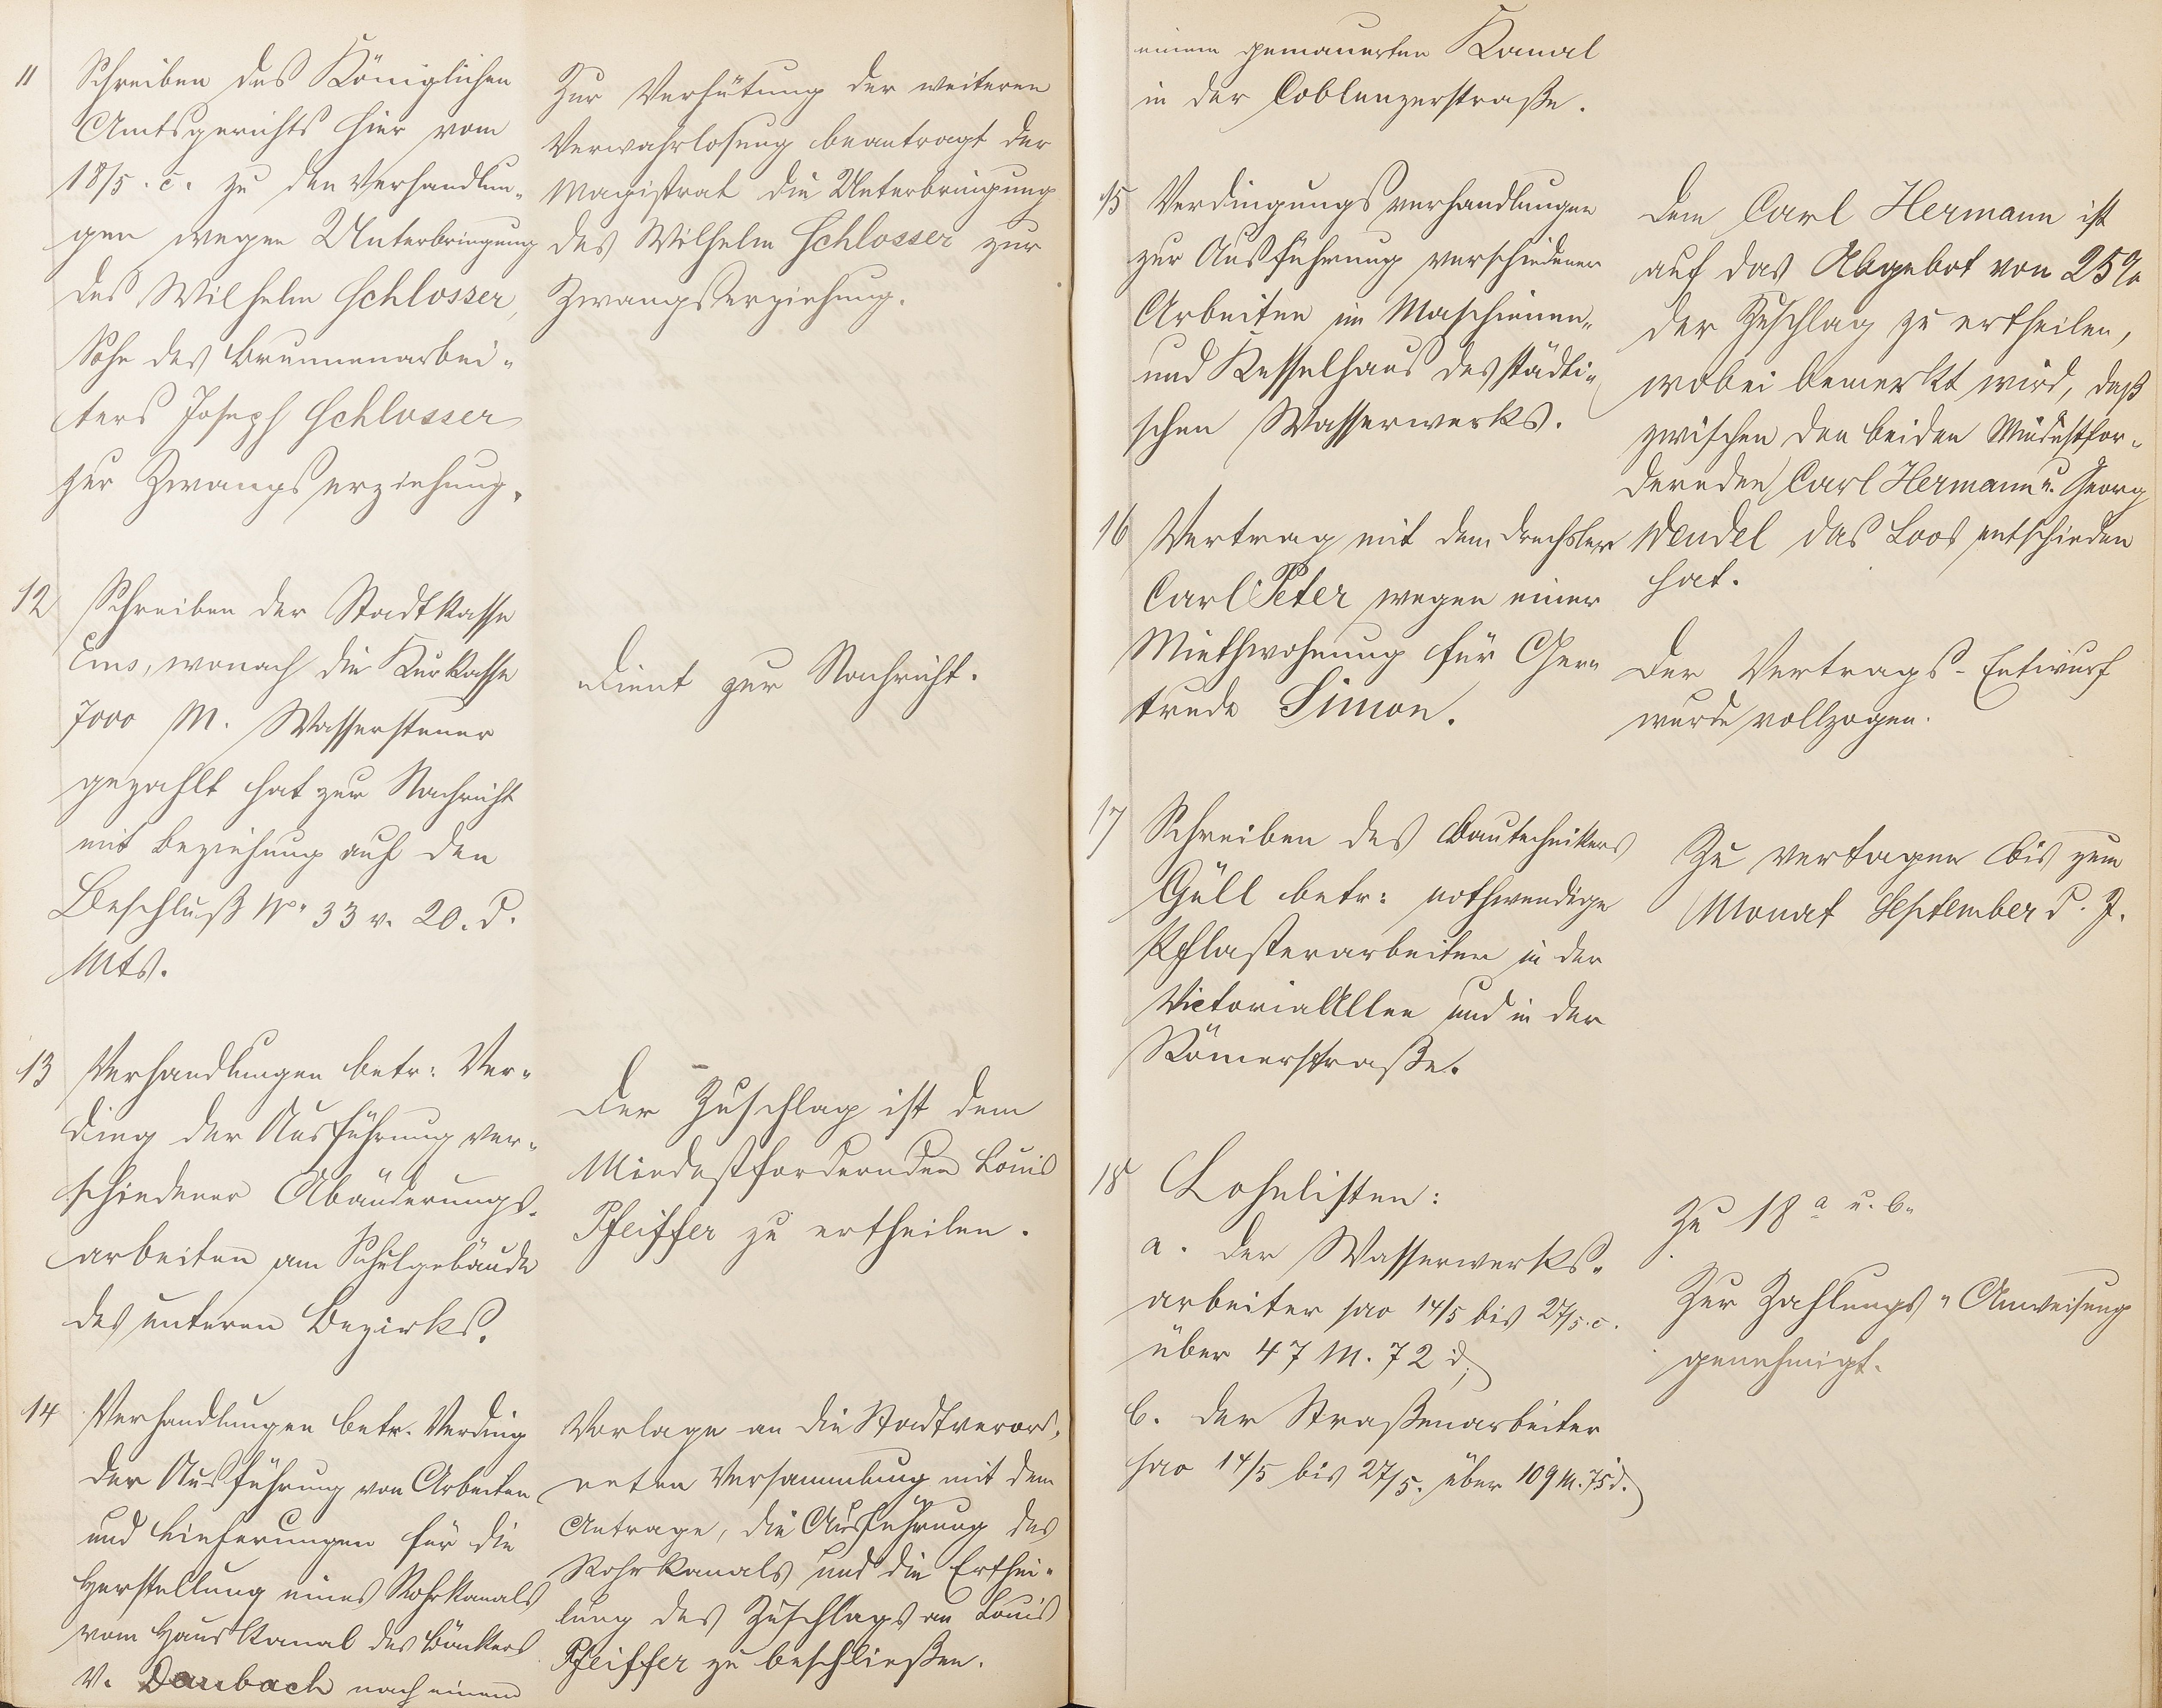 11 Schreiben des Königlichen
Amtsgerichts hier vom
18/5. c. zu den Verhandlun-
gen wegen Unterbringung
des Wilhelm Schlosser,
Sohn des Brunnenarbei-
ters Joseph Schlosser
zur Zwangserziehung.
Zur Verhütung der weiteren
Verwahrlosung beantragt der
Magistrat die Unterbringung
des Wilhelm Schlosser zur
Zwangserziehung.
12 Schreiben der Stadtkasse
Ems, wonach die Kurkasse
7000 M. Wassersteuer
gezahlt hat zur Nachricht
mit Beziehung auf den
Beschluß No. 33 v. 20. d.
Mts.
Dient zur Nachricht.
13 Verhandlungen betr: Ver-
ding der Ausführung ver-
schiedener Abänderungs-
arbeiten am Schulgebäude
des unteren Bezirks.
Der Zuschlag ist dem
Mindestfordernden Louis
Pfeiffer zu ertheilen.
14 Verhandlungen betr. Verding
der Ausführung von Arbeiten
und Lieferungen für die
Herstellung eines Rohrkanals
vom Hauskanal des Bäckers
V. Daubach nach einem
Vorlage an die Stadtverord-
neten Versammlung mit dem
Antrage, die Ausführung des
Rohrkanals und die Erthei-
lung des Zuschlags an Louis
Pfeiffer zu beschließen.
einem gemauerten Kanal
in der Coblenzerstraße.
15 Verdingungsverhandlungen
zur Ausführung verschiedener
Arbeiten im Maschienen-
und Kesselhaus des städti-
schen Wasserwerks.
Dem Carl Hermann ist
auf das Abgebot von 25%
der Zuschlag zu ertheilen,
wobei bemerkt wird, daß
zwischen den beiden Mindestfor-
dernden Carl Hermann u. Georg
Wendel das Loos entschieden
hat.
16 Vertrag mit dem Drechsler
Carl Peter wegen einer
Miethwohnung für Ger-
trude Simon.
Der Vertrags-Entwurf
wurde vollzogen.
17 Schreiben des Bautechnikers
Güll betr: nothwendige
Pflasterarbeiten in der
VictoriaAllee und in der
Römerstraße.
Zu vertagen bis zum
Monat September d. J.
18 Lohnlisten:
a. der Wasserwerks-
arbeiter pro 14/5 bis 27/5. c.
über 47 M. 72 d;
b. der Straßenarbeiter
pro 14/5 bis 27/5. über 109 M. 75 d.
Zu 18 a u. b.
Zur Zahlungs-Anweisung
genehmigt.